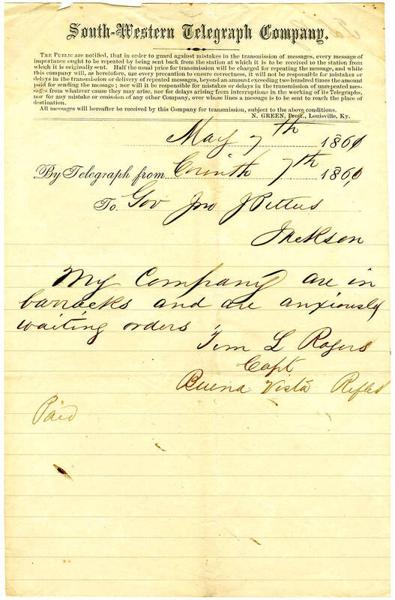 South-Western Telegraph Company.
THE PUBLIC are notified, that in order to guard against mistakes in the transmission of messages, every message of
importance ought to be repeated by being sent back from the station at which it is to be received to the station from
which it is originally sent. Half the usual price for transmission will be charged for repeating the message, and while
this company will, as heretofore, use every precaution to ensure correctness, it will not be responsible for mistakes or
delays in the transmission or delivery of repeated messages, beyond an amount exceeding two hundred times the amount
paid for sending the message; nor will it be responsible for mistakes or delays in the transmission of unrepeated mes-
sages from whatever cause they may arise, nor for delays arising from interruptions in the working of its Telegraphs,
nor for any mistake or omission of any other Company, over whose lines a message is to be sent to reach the place of
destination.
All messages will hereafter be received by this Company for transmission, subject to the above conditions.
N. GREEN, Prest., Louisville, Ky.
May 7th 1861
By Telegraph from Corinth 7th 1860
To Gov Jno J Pettus
Jackson
My Company are in
barracks and are anxiously
waiting orders
Tim L Rogers
Capt
Buena Vista Rifles
Paid